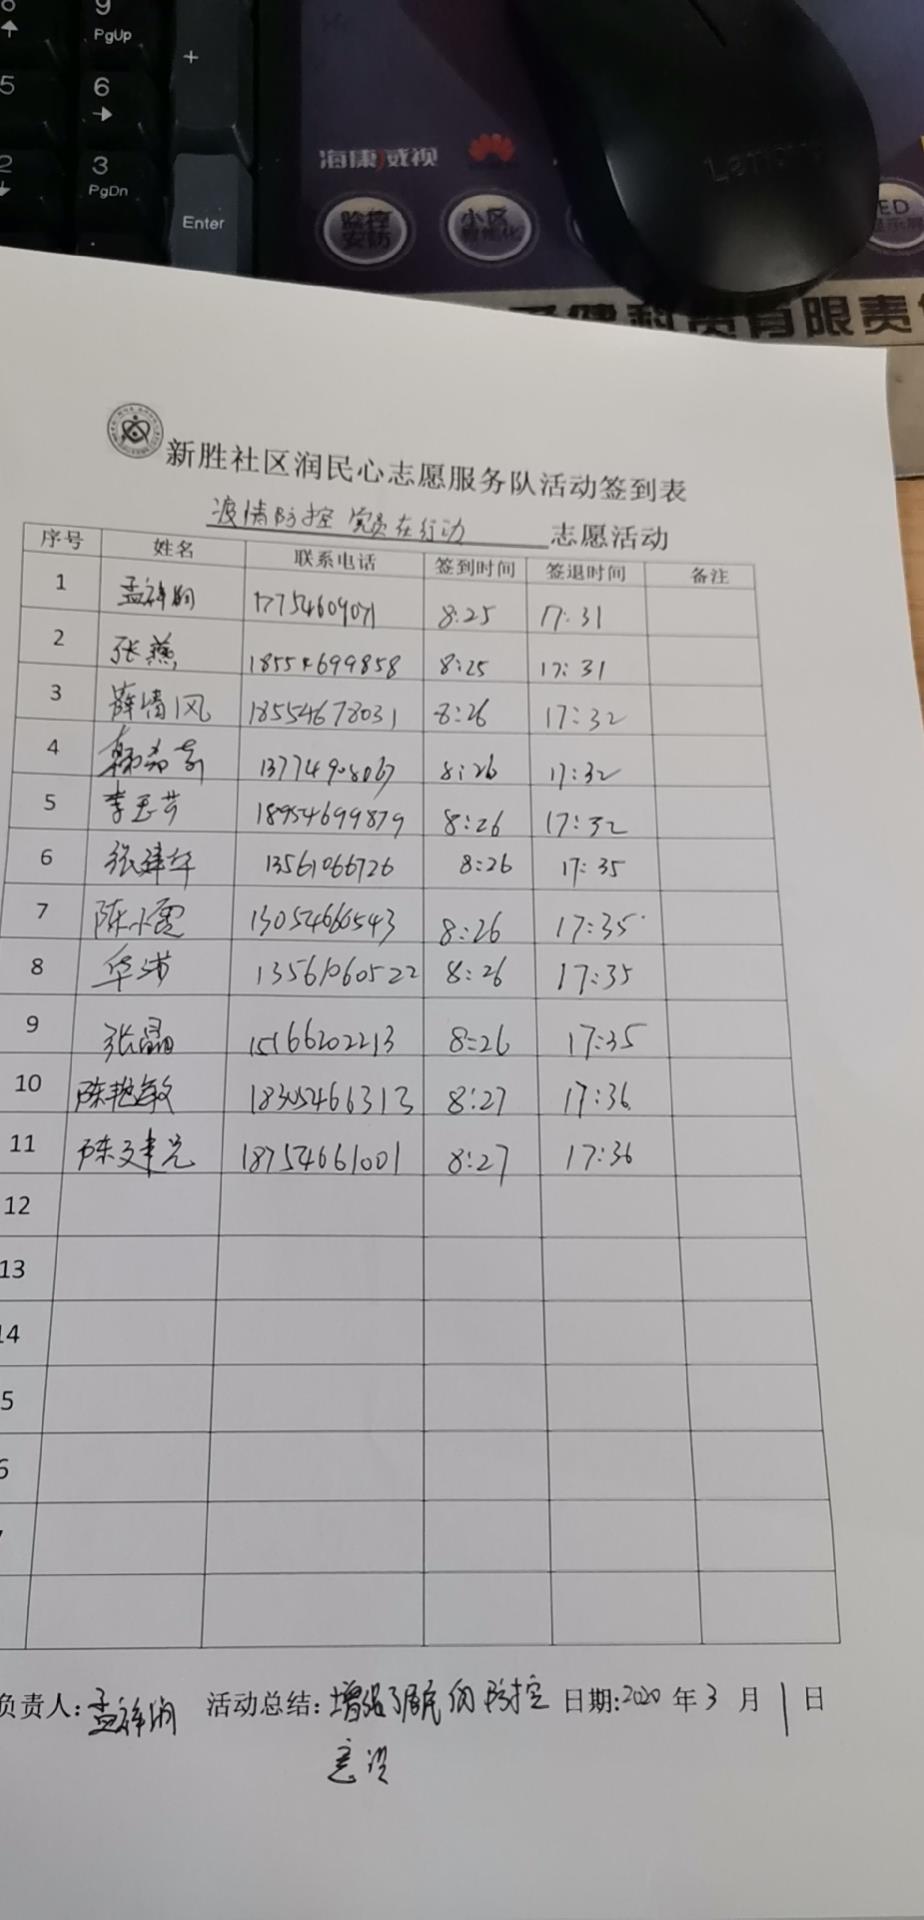 8
9
PgUp
+
5
6
2
3
PgDn
Enter
海康威视
HUAWEI
监控
安防
小区
智能化
Lenovo
ED
显示屏
科贸有限责
新胜社区润民心志愿服务队活动签到表
疫情防控 党员在行动 志愿活动
序号 姓名 联系电话 签到时间 签退时间 备注
1 孟祥润 17754609071 8:25 17:31
2 张燕 18554699858 8:25 17:31
3 薛清风 18554678031 8:26 17:32
4 13774908067 8:26 17:32
5 李玉芳 18954699879 8:26 17:32
6 张建华 13561066726 8:26 17:35
7 陈小霞 13054660543 8:26 17:35
8 华涛 13561060522 8:26 17:35
9 张晶 15166202213 8:26 17:35
10 陈艳敏 18305466313 8:27 17:36
11 陈建光 18754661001 8:27 17:36
12
13
14
5
6
负责人:孟祥润 活动总结:增强了居民的防控 日期:2020年3月1日
意识